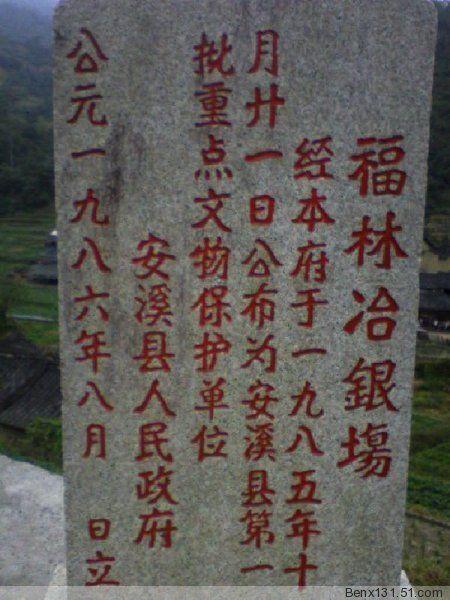 福林冶銀塲
经本府于一九八五年十
月廿一日公布为安溪县第一
批重点文物保护单位
安溪县人民政府
公元一九八六年八月 日立
Benx131.51.com